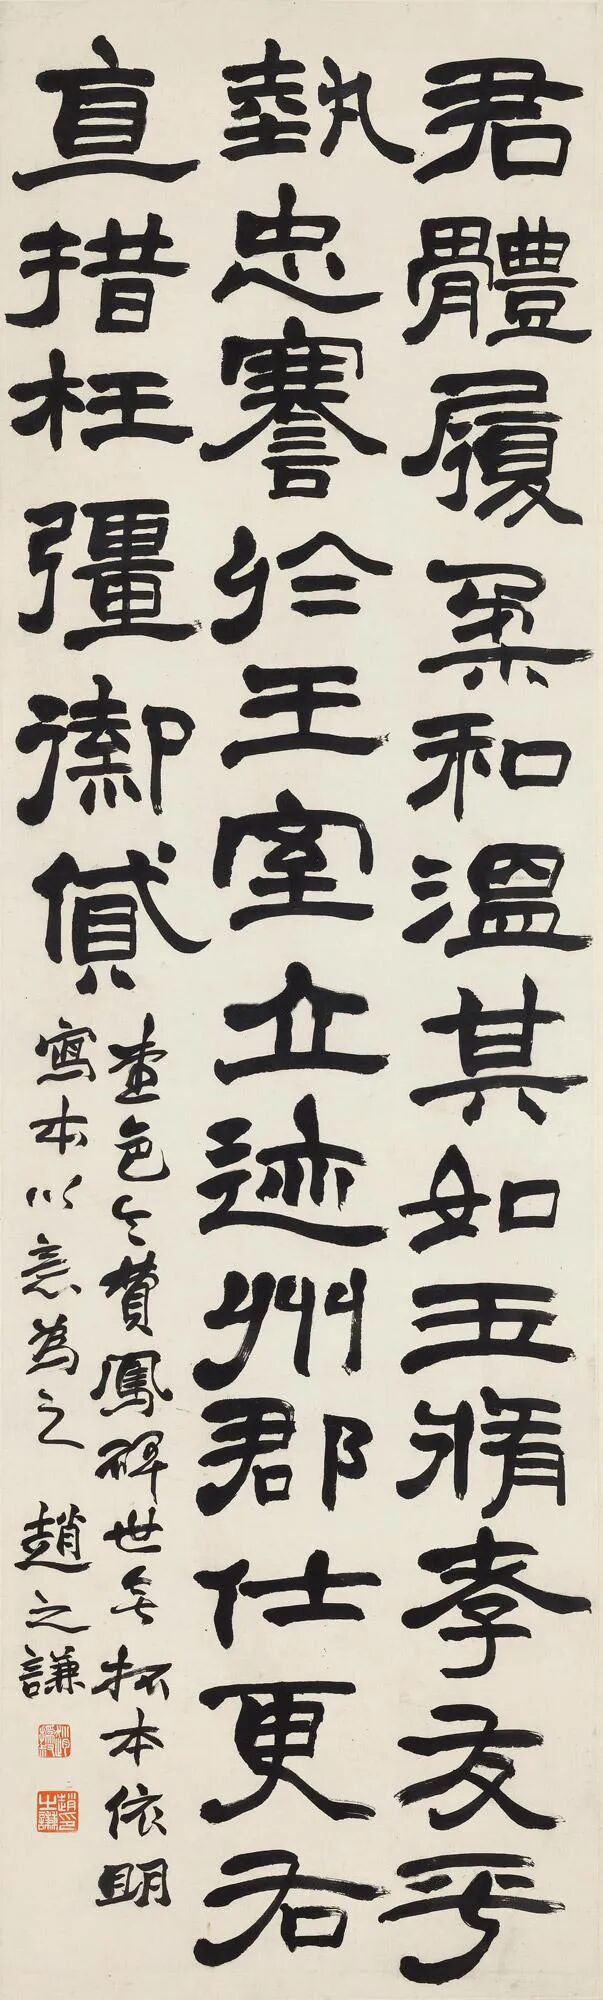 君體履柔和溫其如玉脩孝友乎
執忠謇於王室立迹州郡仕更右
直措枉彊禦貸
堂邑令費鳳碑世無拓本依明
寫本以意為之 趙之謙
趙撝叔
趙之謙印